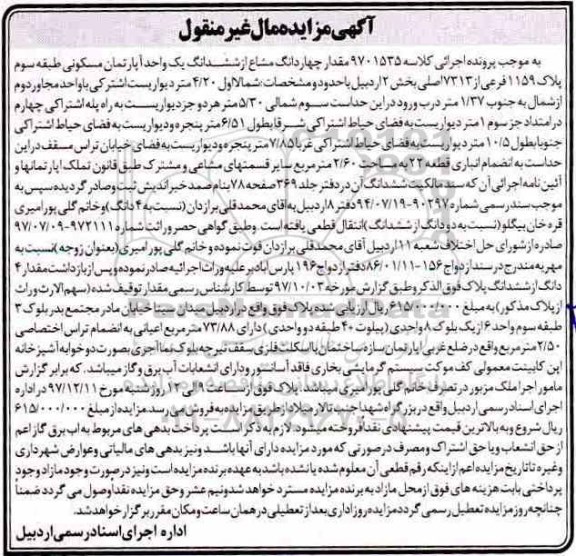 آگهی مزایده مال غیر منقول
به موجب پرونده اجرائی کلاسه ۹۷۰۱۵۳۵ مقدار چهاردانگ مشاع از ششدانگ یک واحد آپارتمان مسکونی طبقه سوم
پلاک ۱۱۵۹ فرعی از ۷۳۱۳ اصلی بخش ۲ اردبیل با حدود و مشخصات: شمالا اول ۴/۲۰ متر دیواریست اشتراکی با واحد مجاور دوم
از شمال به جنوب ۱/۳۷ متر درب ورود در این حد است سوم شمالی ۵/۳۰ متر هر دو جزء دیواریست به راه پله اشتراکی چهارم
در امتداد جزء سوم ۱ متر دیواریست به فضای حیاط اشتراکی شرقا بطول ۶/۵۱ متر پنجره و دیواریست به فضای حیاط اشتراکی
جنوبا بطول ۱۰/۵ متر دیواریست به فضای حیاط اشتراکی غربا ۷/۸۵ متر پنجره و دیواریست به فضای خیابان تراس مسقف در این
حد است به انضمام انباری قطعه ۲۲ به مساحت ۲/۶۰ متر مربع سایر قسمتهای مشاعی و مشترک طبق قانون تملک آپارتمانها و
آئین نامه اجرائی آن که سند مالکیت ششدانگ آن در دفتر جلد ۳۶۹ صفحه ۷۸ بنام صمد خیراندیش ثبت و صادر گردیده سپس به
موجب سند رسمی شماره ۹۰۲۹۷-۹۴/۰۷/۱۹ دفتر ۸ اردبیل به آقای محمدقلی برازدان (نسبت به ۴ دانگ) و خانم گلی پور امیری
قره خان بیگلو (نسبت به دو دانگ از ششدانگ) انتقال قطعی یافته است. وطبق گواهی حصر وراثت شماره ۹۷۲۱۱۱-۹۷/۰۷/۰۹
صادره از شورای حل اختلاف شعبه ۱۱ اردبیل آقای محمدقلی برازدان فوت نموده و خانم گلی پور امیری (بعنوان زوجه) نسبت به
مهریه مندرج در سند ازدواج ۱۵۶-۸۶/۰۱/۱۱ دفتر ازدواج ۱۹۶ پارس آباد بر علیه وراث اجرائیه صادر نموده و پس از بازداشت مقدار ۴
دانگ از ششدانگ پلاک فوق الذکر و طبق گزارش مورخه ۹۷/۱۰/۰۳ توسط کارشناس رسمی مقدار توقیف شده (سهم الارث وراث
از پلاک مذکور) به مبلغ ۶۱۵/۰۰۰/۰۰۰ ریال ارزیابی شده پلاک فوق واقع در اردبیل میدان بسیج خیابان مادر مجتمع بدر بلوک ۳
طبقه سوم واحد ۶ از یک بلوک ۸ واحدی (پیلوت + ۴ طبقه دو واحدی) دارای ۷۳/۸۸ متر مربع اعیانی به انضمام تراس اختصاصی
۲/۵۰ متر مربع واقع در ضلع غربی آپارتمان سازه ساختمان با اسکلت فلزی سقف تیرچه بلوک نما آجری بصورت دو خوابه آشپزخانه
اپن کابینت معمولی کف موکت سیستم گرمایشی بخاری فاقد آسانسور و دارای انشعابات آب برق و گاز میباشد. که برابر گزارش
مامور اجرا ملک مزبور در تصرف خانم گلی پور امیری میباشد. پلاک فوق از ساعت ۹ الی ۱۲ روز شنبه مورخ ۹۷/۱۲/۱۱ در اداره
اجرای اسناد رسمی اردبیل واقع در بزرگراه شهدا جنب تالار میلاد از طریق مزایده به فروش می رسد مزایده از مبلغ ۶۱۵/۰۰۰/۰۰۰
ریال شروع و به بالاترین قیمت پیشنهادی نقدا فروخته میشود. لازم به ذکر است پرداخت بدهی های مربوط به آب برق گاز اعم
از حق انشعاب و یا حق اشتراک و مصرف در صورتی که مورد مزایده دارای آنها باشد و نیز بدهی های مالیاتی و عوارض شهرداری
و غیره تا تاریخ مزایده اعم از اینکه رقم قطعی آن معلوم شده یا نشده باشد به عهده برنده مزایده است و نیز در صورت وجود مازاد وجوه
پرداختی بابت هزینه های فوق از محل مازاد به برنده مزایده مسترد خواهد شد و نیم عشر و حق مزایده نقدا وصول می گردد ضمناً
چنانچه روز مزایده تعطیل رسمی گردد مزایده روز اداری بعد از تعطیلی در همان ساعت و مکان مقرر برگزار خواهد شد.
اداره اجرای اسناد رسمی اردبیل